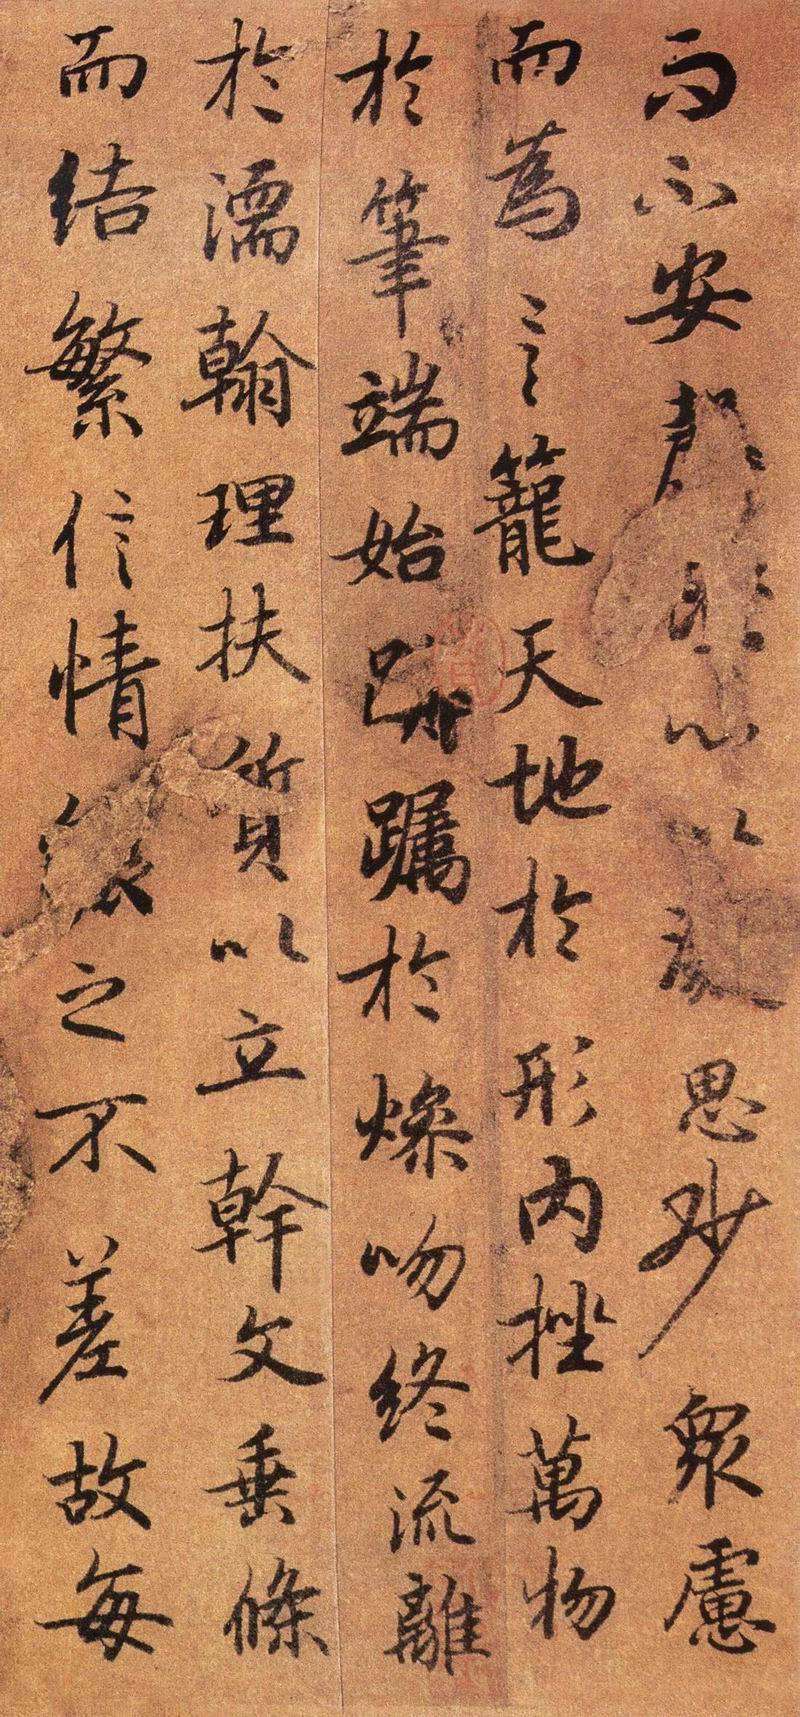 而不安心以思眇衆慮
而為言籠天地於形內挫萬物
於筆端始躅於燥吻終流離
於濡翰理扶質以立幹文垂條
而結繁信情之不差故每